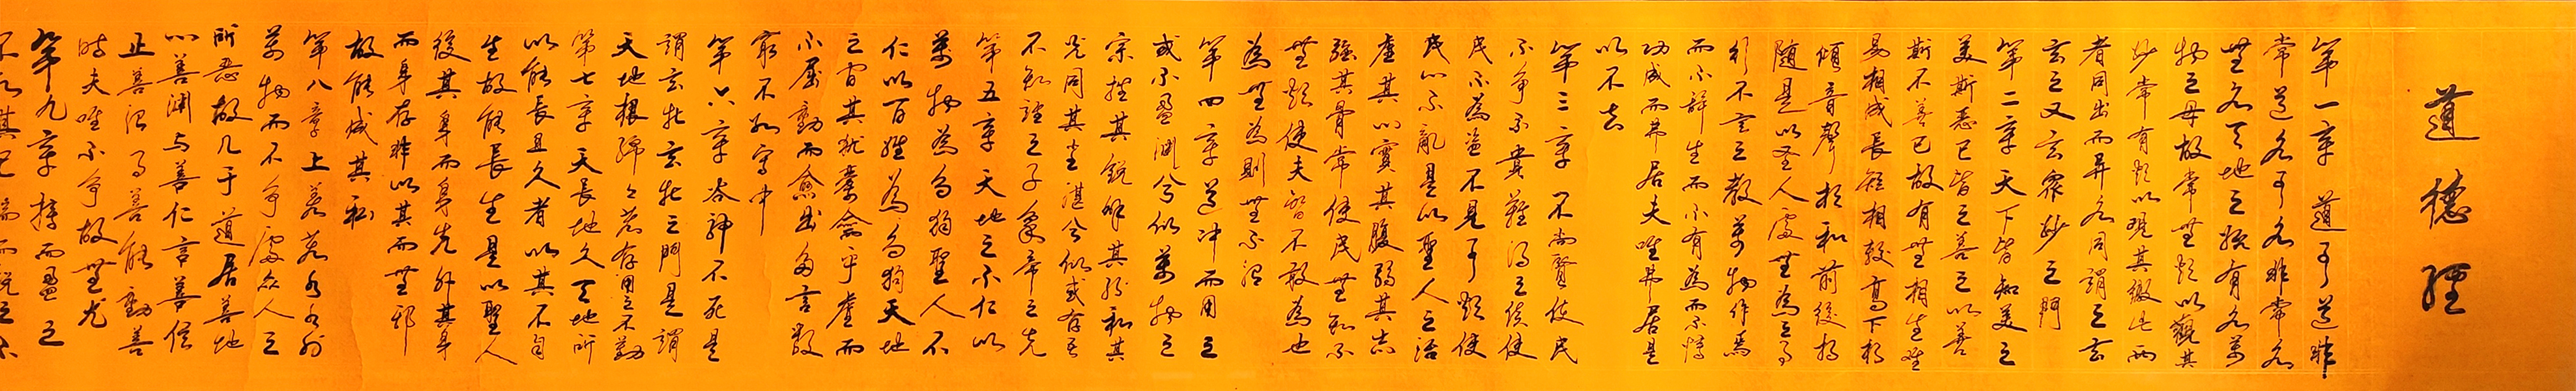 道德經
第一章 道可道非
常道名可名非常名
無名天地之始有名萬
物之母故常無欲以觀其
妙常有欲以觀其徼此兩
者同出而異名同謂之玄
玄之又玄眾妙之門
第二章 天下皆知美之
美斯惡已皆知善之以善
斯不善已故有無相生難
易相成長短相較高下相
傾音聲相和前後相
隨是以圣人處無為之事
行不言之教萬物作焉
而不辭生而不有為而不恃
功成而弗居夫唯弗居是
以不去
第三章 不尚賢使民
不爭不貴難得之貨使
民不為盜不見可欲使
民心不亂是以聖人之治
虛其心實其腹弱其志
強其骨常使民無知不
無欲使夫智不敢為也
為無為則無不治
第四章 道冲而用之
或不盈淵兮似萬物之
宗挫其銳解其紛和其
光同其塵湛兮似或存吾
不知誰之子象帝之先
第五章 天地之不仁以
萬物為芻狗聖人不
仁以百姓為芻狗天地
之間其猶橐龠乎虛而
不屈動而愈出多言數
窮不如守中
第六章 谷神不死是
謂玄牝玄牝之門是謂
天地根綿之若存用之不勤
第七章 天長地久天地所
以能長且久者以其不自
生故能長生是以聖人
後其身而身先外其身
而身存非以其而無邪
故能成其私
第八章 上善若水水利
萬物而不爭處眾人之
所惡故几于道居善地
心善淵与善仁言善信
正善治事善能動善
時夫唯不爭故無尤
第九章 持而盈之
不